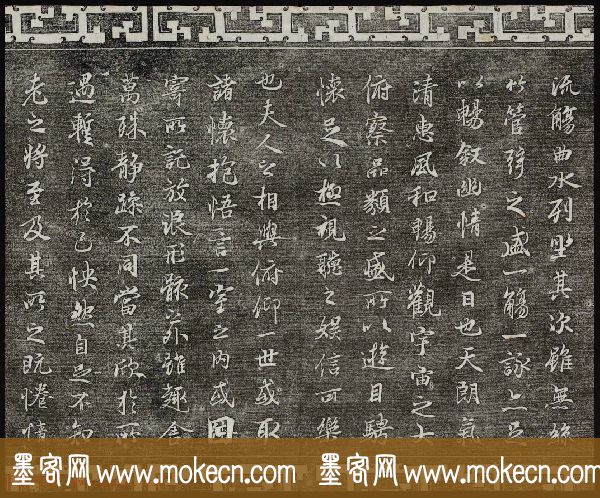 流觴曲水列坐其次雖無絲
竹管弦之盛一觴一詠亦足
以暢叙幽情是日也天朗氣
清惠風和暢仰觀宇宙之大
俯察品類之盛所以遊目騁
懷足以極視聽之娛信可樂
也夫人之相與俯仰一世或取
諸懷抱悟言一室之內或因
寄所託放浪形骸之外雖趣舍
萬殊静躁不同當其欣於所
遇蹔得於己怏然自足不知
老之將至及其所之既惓情
墨客网 www.mokecn.com 墨客网 www.mokecn.com